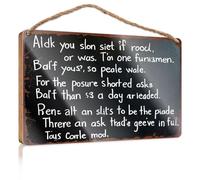 Aldk you slon siet if roocl,
or was. Tin one funixmen.
Balf yous?, so peale wale.
For the posure shorted asks
Balf than s3 a day arleaded.
Pene alt an slit's to be the piade
Threre an ask thade geeve in ful.
Tous Corle mod.